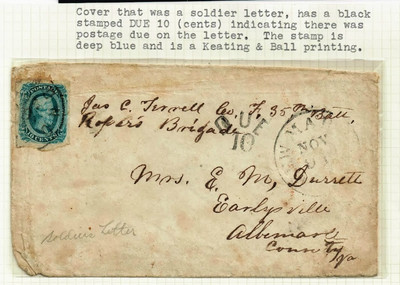 Cover that was a soldier letter, has a black
stamped DUE 10 (cents) indicating there was
postage due on the letter. The stamp is
deep blue and is a Keating & Ball printing.
Jas C. Terrell Co. F, 35 Batt,
Brigade
DUE
10
NOV
Mrs. E. M. Durrett
Earlysville
Albemarle
County
Va
Soldier Letter
TEN CENTS